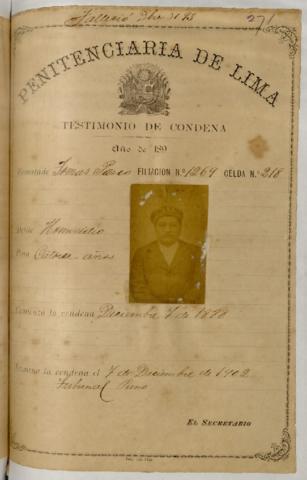 Falleció
271
PENITENCIARIA DE LIMA
TESTIMONIO DE CONDENA
Año de 189
Rematado Tomas FILIACION N.º 1269 CELDA N.º 218
Delito Homicidio
Pena Catorce años
Comienza la condena Diciembre 7 de 1888
Termina la condena el 7 de Diciembre de 1902
Tribunal Puno
EL SECRETARIO